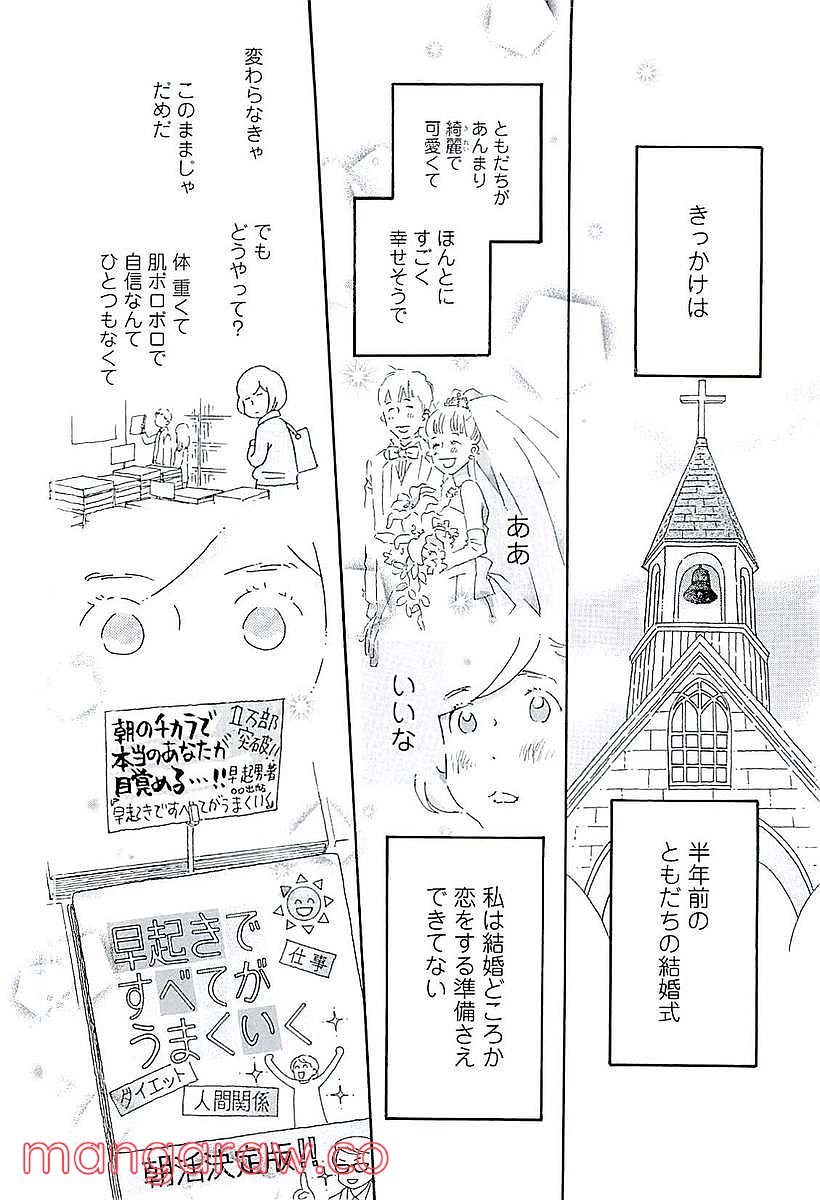 きっかけは
半年前の
ともだちの結婚式
ともだちが
あんまり
綺麗で
きれい
可愛くて
ほんとに
すごく
幸せそうで
ああ
いいな
私は結婚どころか
恋をする準備さえ
できてない
変わらなきゃ
このままじゃ
だめだ
でも
どうやって?
体 重くて
肌ボロボロで
自信なんて
ひとつもなくて
朝のチカラで
本当のあなたが
目覚める…!!
突破!!
早起男著
『早起きですべてがうまくいく』
早起きで
すべてが
うまくいく
仕事
ダイエット
人間関係
朝活決定版!!
mangaraw.co